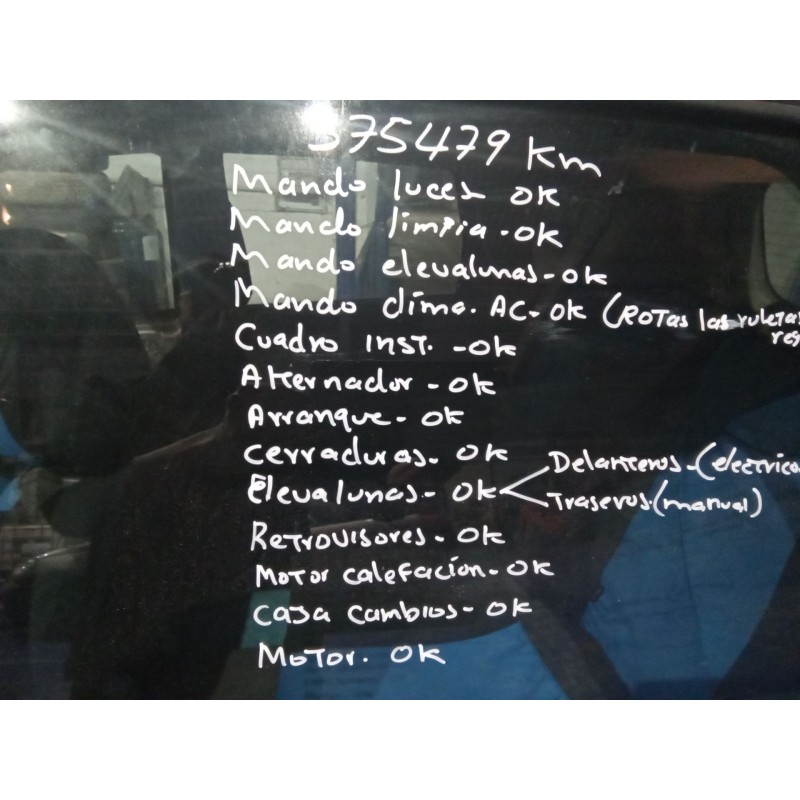 375479 km
Mando luces OK
Mando limpia - OK
Mando elevalunas - OK
Mando clima. AC - OK (ROTAS las ruletas
Cuadro INST. - OK
Alternador - OK
Arranque - OK
Cerraduras - OK
Elevalunas - OK < Delanteros - (electrico
Traseros (manual)
RETROVISORES - OK
MOTOR calefación - OK
CAJA cambios - OK
MOTOR. OK